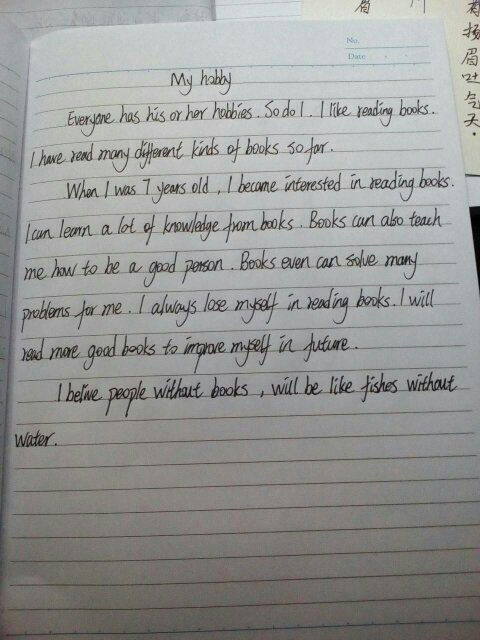 眉
川
扬
眉
吐
气
天.
No.
Date
My hobby
Everyone has his or her hobbies. So do I. I like reading books.
I have read many different kinds of books so far.
When I was 7 years old, I became interested in reading books.
I can learn a lot of knowledge from books. Books can also teach
me how to be a good person. Books even can solve many
problems for me. I always lose myself in reading books. I will
read more good books to improve myself in future.
I belive people without books, will be like fishes without
water.